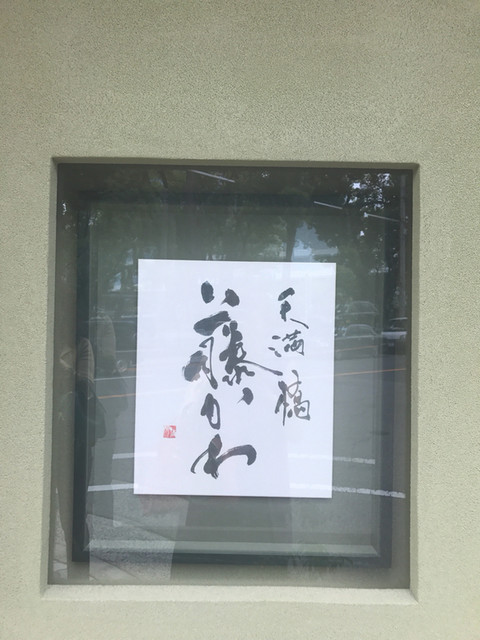 天満橋
藤かわ